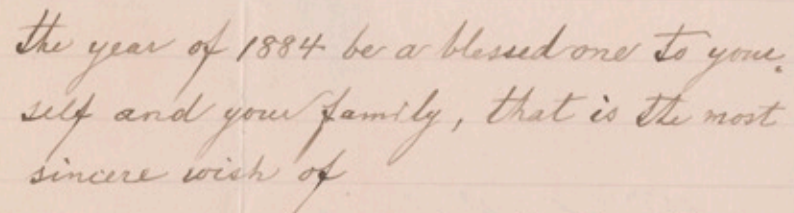 the year of 1884 be a blessed one to your-
self and your family, that is the most
sincere wish of